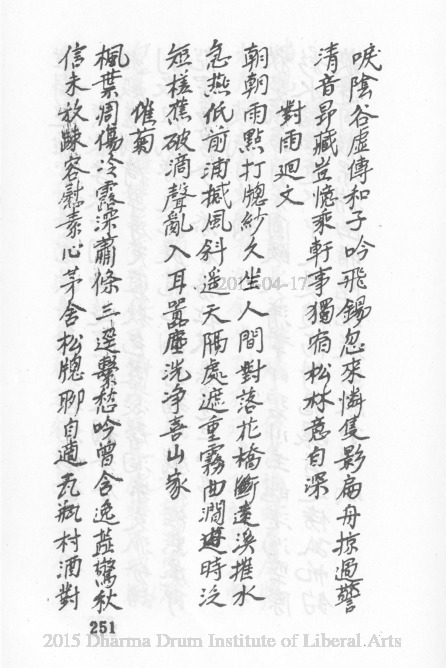 唳陰谷虛傳和子吟飛錫忽來憐隻影扁舟掠過警
清音昂藏豈憶乘軒事獨宿松林意自深
對雨迴文
朝朝雨點打牕紗久坐人間對落花橋斷遠溪摧水
急燕低前浦撼風斜遥天隔處遮重霧曲澗邊時泛
短槎蕉破滴聲亂入耳囂塵洗净喜山家
催菊
楓葉凋傷冷露深蕭條三逕繫愁吟曾含逸蕊驚秋
信未放踈容慰素心茅舍松牕聊自適瓦瓶村酒對
251
2015-04-17
2015 Dharma Drum Institute of Liberal Arts